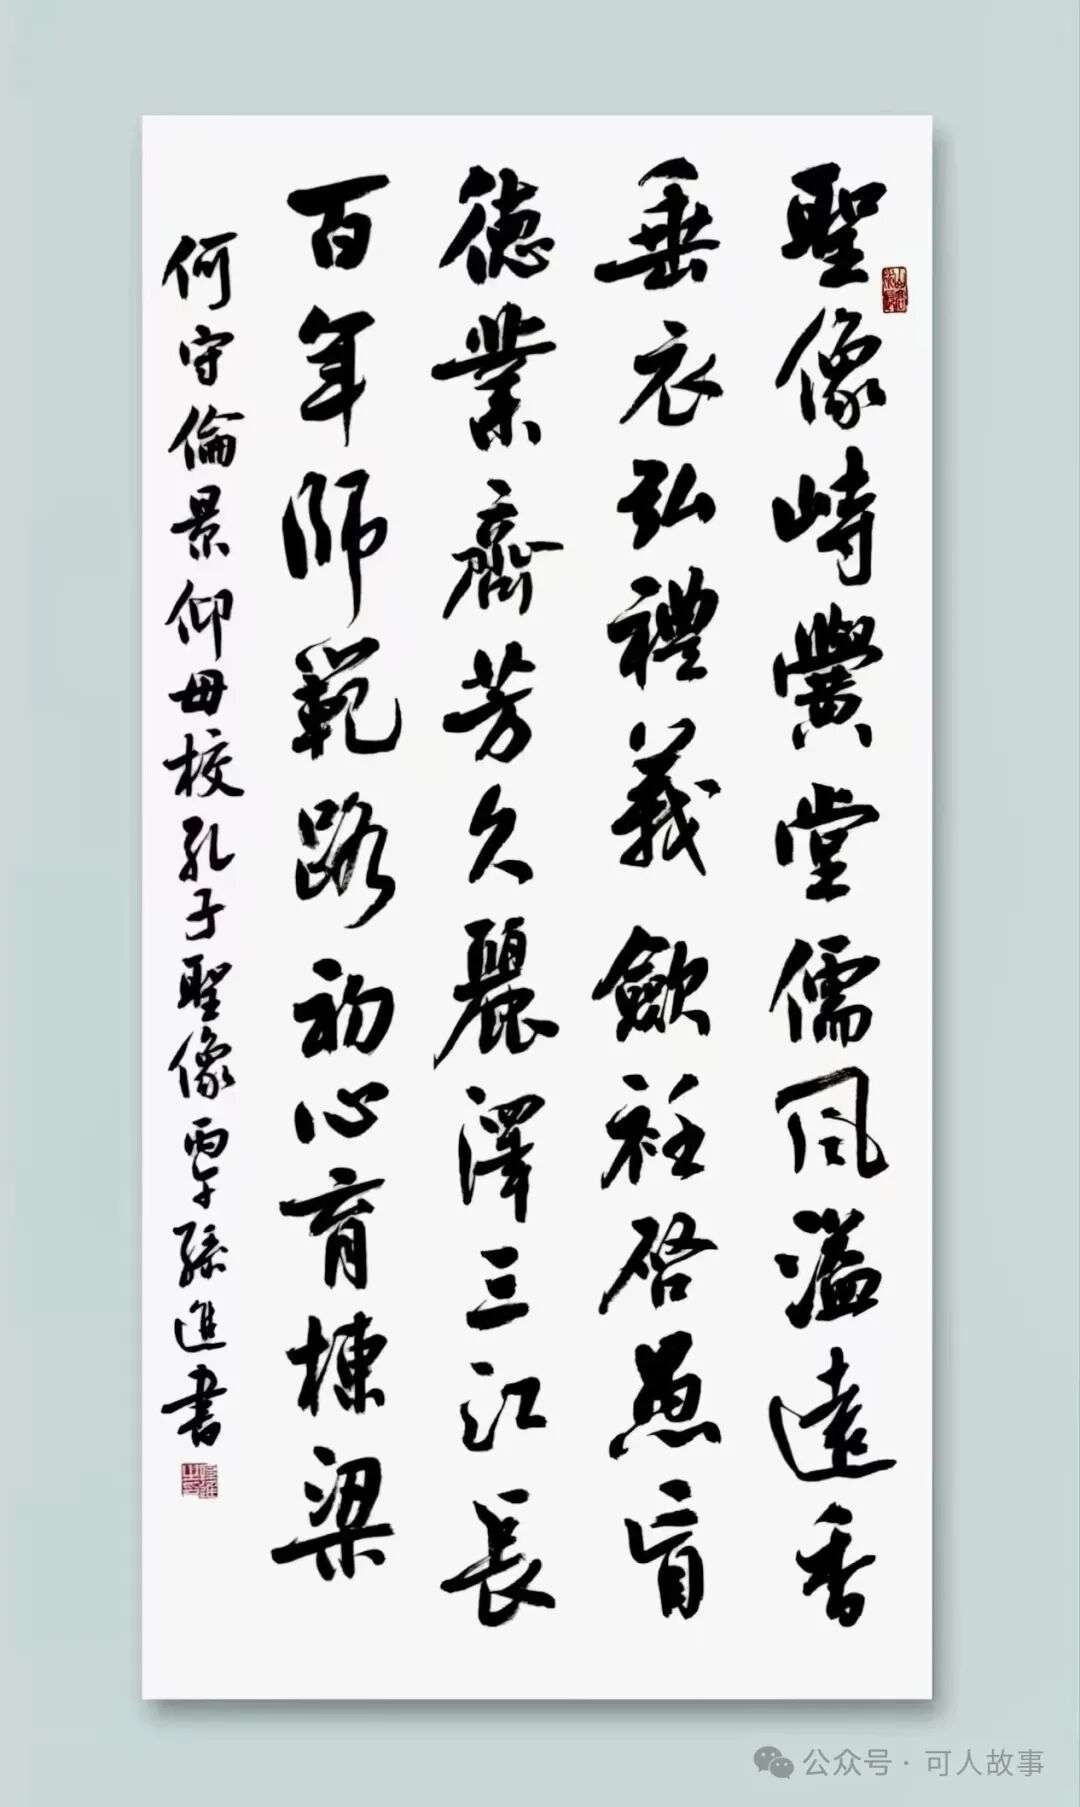 聖像峙黌堂儒風溢遠香
垂衣弘禮義歛衽啓愚盲
德業齊芳久麗澤三江長
百年師範路初心育棟梁
何守倫景仰母校孔子聖像丙午孫進書
公众号·可人故事